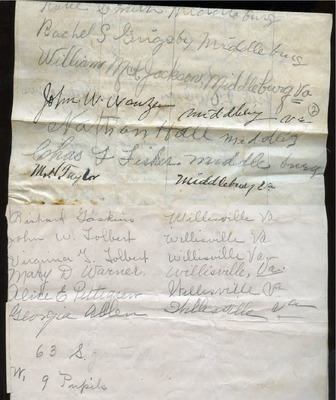 Smith Middleburg
Rachel S Grigsby Middleburg
William Mc Jackson, Middleburg Va
John W. Wanzer middleburg va
2
Nathan Hall middleburg
Chas F Fisher middleburg
M. H. Taylor Middleburg Va
Richard Gaskins Willisville Va
John W. Tolbert Willisville Va
Virginia G. Tolbert Willisville Va
Mary D Warner. Willisville, Va.
Alice E Pettigrew Willisville Va
Georgia Allen Willisville va
63 S.
W. 9 Pupils